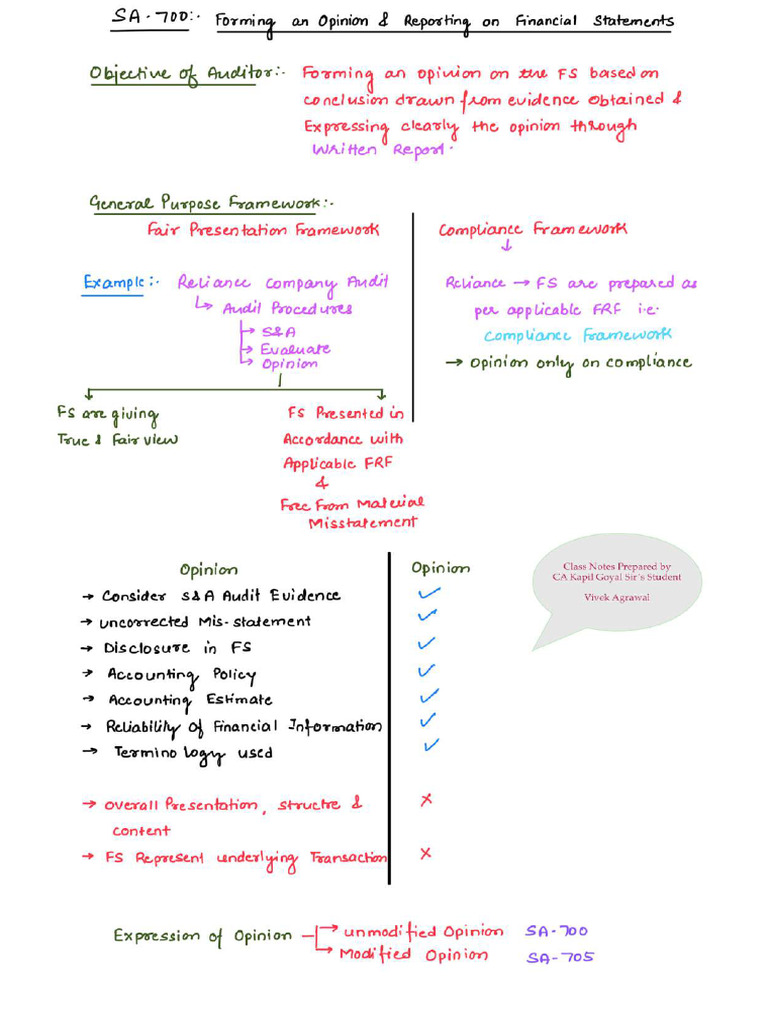 SA-700:- Forming an Opinion & Reporting on Financial Statements
Objective of Auditor:- Forming an opinion on the FS based on
conclusion drawn from evidence obtained &
Expressing clearly the opinion through
Written Report.
General Purpose Framework:-
Fair Presentation Framework
Compliance Framework
↓
Example:- Reliance Company Audit
↳ Audit Procedures
→ S&A
→ Evaluate
→ Opinion
Reliance → FS are prepared as
per applicable FRF i.e.
Compliance Framework
→ Opinion only on compliance
FS are giving
True & Fair view
FS Presented in
Accordance with
Applicable FRF
&
Free From Material
Misstatement
Class Notes Prepared by
CA Kapil Goyal Sir's Student
Vivek Agrawal
Opinion Opinion
→ Consider S&A Audit Evidence ✓
→ uncorrected Mis-statement ✓
→ Disclosure in FS ✓
→ Accounting Policy ✓
→ Accounting Estimate ✓
→ Reliability of Financial Information ✓
→ Terminology used ✓
→ Overall Presentation, structre & ×
content
→ FS Represent underlying Transaction ×
Expression of Opinion → unmodified Opinion SA-700
→ Modified Opinion SA-705